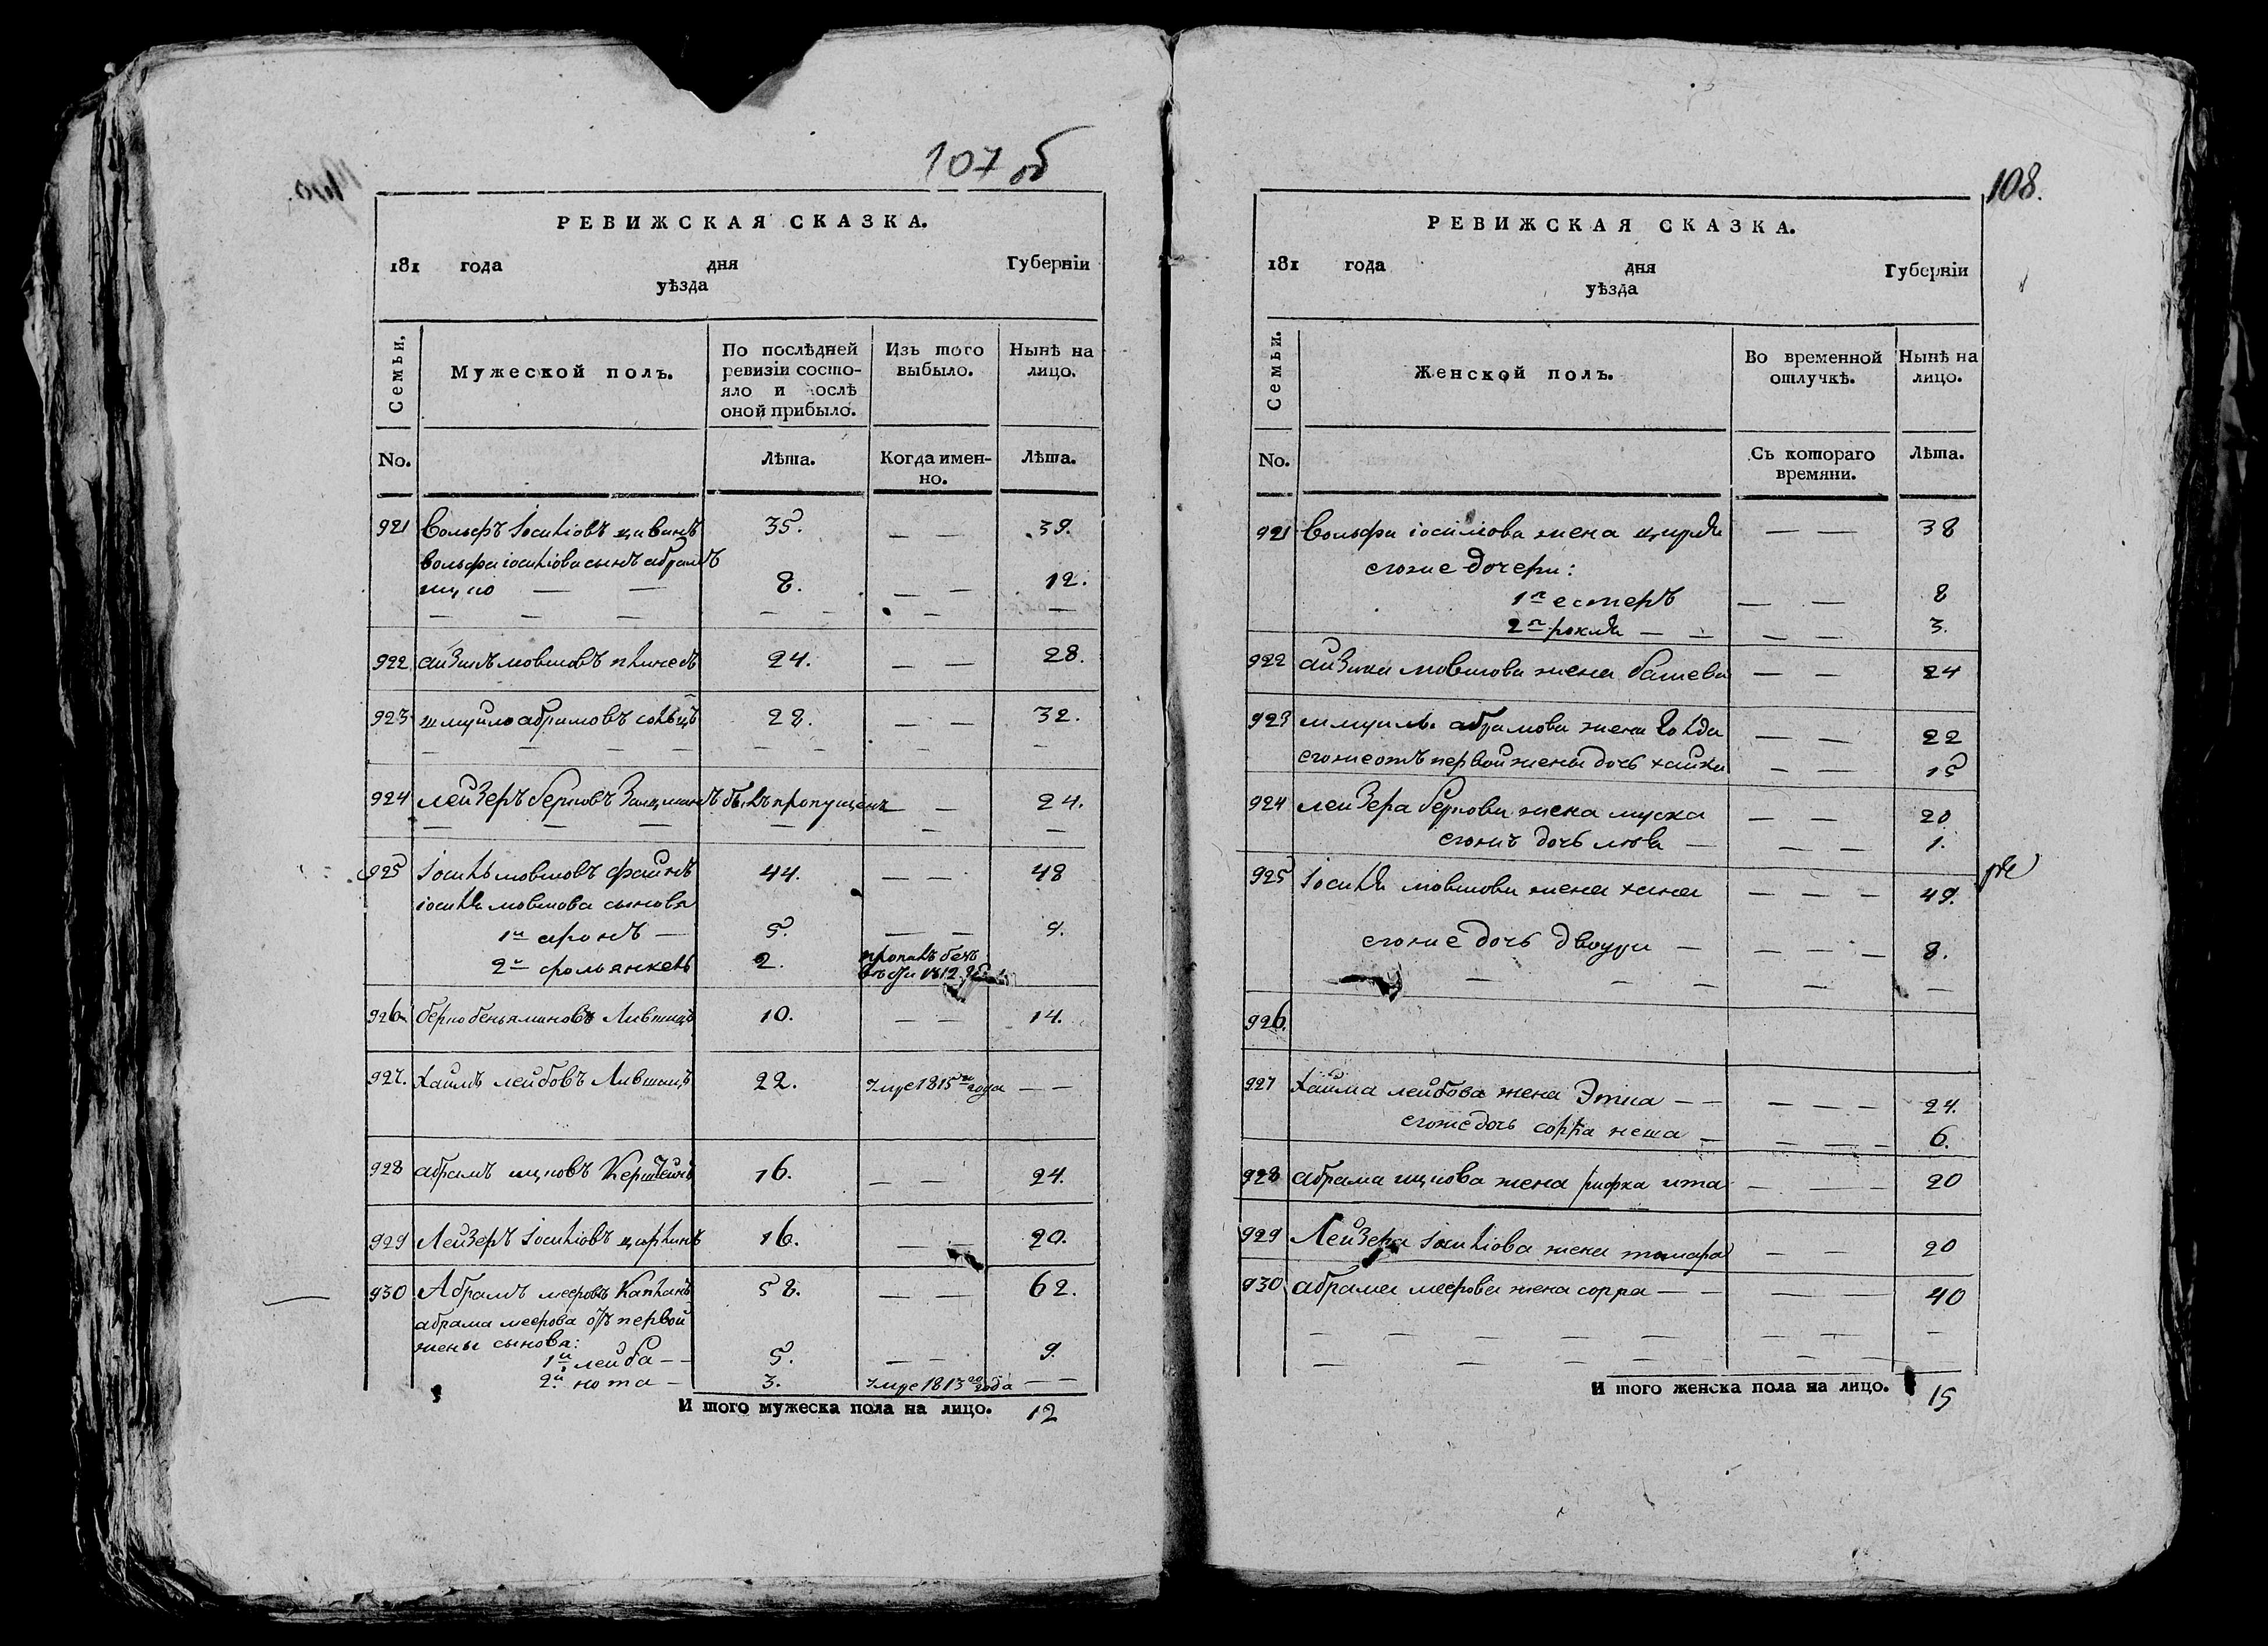 107 об
РЕВИЖСКАЯ СКАЗКА.
181 года дня Губерніи
уѣзда
Семьи,
Мужеской полъ.
По послѣдней
ревизіи состо-
яло и ослѣ
оной прибыло.
Изъ того
выбыло.
Нынѣ на
лицо.
No.
Лѣта.
Когда имен-
но.
Лѣта.
921 Вольфъ Iосиліовъ цивинъ 35. — — 39.
вольфа іосиліова сынъ абрамъ
ицко — — 8. — — 12.
922 айзикъ мовшовъ 24. — — 28.
923 шмуйло абрамовъ 28. — — 32.
924 лейзеръ берковъ былъ пропущенъ — 24.
925 Iосиль мовшовъ файнъ 44. — — 48
іосиля мовшова сыновья
1й аронъ — 5. — — 9.
2й 2. пропалъ безъ
вѣсти 1812
926 берко беньяминовъ Лившицъ 10. — — 14.
927. Хаимъ лейбовъ Лившицъ 22. умре 1815го года — —
928 абрамъ ицковъ 16. — — 24.
929 Лейзеръ Iосиліовъ 16. — — 20.
930 Абрамъ мееровъ Капланъ 58. — — 62.
абрама меерова отъ первой
жены сыновья:
1й лейба — — 5. — — 9.
2й нота — 3. умре 1813го года — —
И того мужеска пола на лицо. 12
108.
РЕВИЖСКАЯ СКАЗКА.
181 года дня Губерніи
уѣзда
Семьи.
Женской полъ.
Во временной
отлучкѣ.
Нынѣ на
лицо.
No.
Съ котораго
времяни.
Лѣта.
921 Вольфа іосиліова жена цирля — — 38
егоже дочери:
1я естеръ — — 8
2я рохля — — — — 3.
922 айзика мовшова жена башева — — 24
923 шмуйлы абрамова жена Голда — — 22
егоже отъ первой жены дочь хайка — — 15
924 лейзера беркова жена муска — — 20
егоже дочь — — — 1.
925 Iосиля мовшова жена хана — — — 49.
егоже дочь двойра — — — — 8.
926.
927 Хаима лейбова жена Этка — — — — — 24.
егоже дочь сорра неша — — — — 6.
928 абрама ицкова жена рифка ита — — — 20
929 Лейзера Iосиліова жена тамара — — 20
930 абрама меерова жена сорра — — — — 40
И того женска пола на лицо. 15